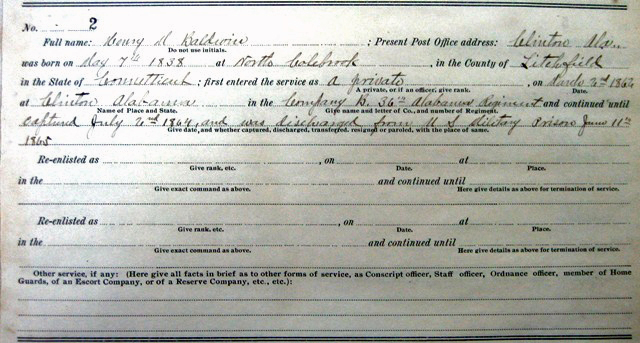 No. 2
Full name: Henry D Baldwin Present Post Office address: Clinton Ala.
Do not use initials.
was born on May 7th 1838 at North Colebrook, in the County of Litchfield
in the State of Connecticut; first entered the service as a private, on March 2d 1862
A private, or if an officer, give rank. Date.
at Clinton Alabama in the Company B. 36th Alabama Regiment and continued until
Name of Place and State. Give name and letter of Company, and number of Regiment.
captured July 2nd 1864 and was discharged from U S Military Prison June 11th
Give date, and whether captured, discharged, transferred, resigned or paroled, with the place of same.
1865
Re-enlisted as, on at
Give rank, etc. Date. Place.
in the and continued until
Give exact command as above. Here give details as above for termination of service.
Re-enlisted as, on at
Give rank, etc. Date. Place.
in the and continued until
Give exact command as above. Here give details as above for termination of service.
Other service, if any: (Here give all facts in brief as to other forms of service, as Conscript officer, Staff officer, Ordnance officer, member of Home
Guards, of an Escort Company, or of a Reserve Company, etc., etc.):